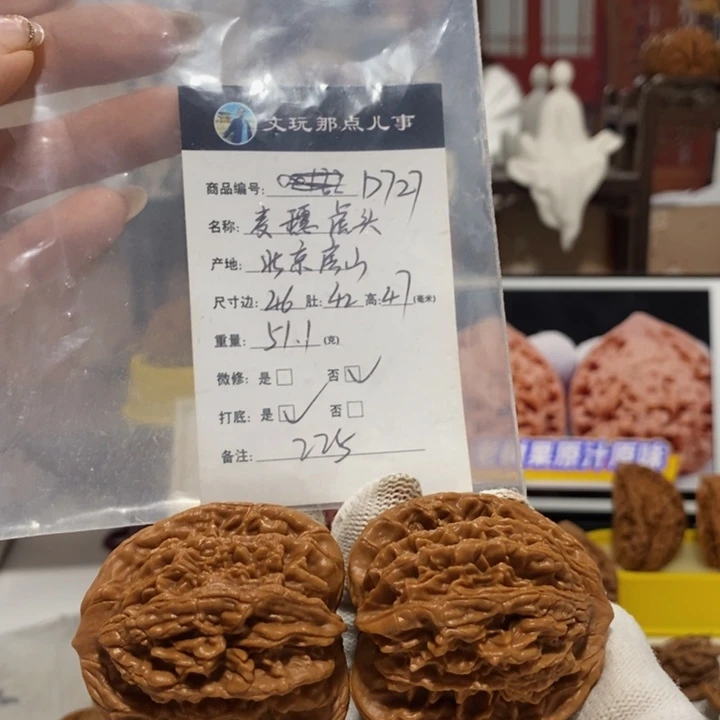 文玩那点儿事
商品编号: D727
名称: 麦穗虎头
产地: 北京房山
尺寸边: 46 肚: 42 高: 47 (毫米)
重量: 51.1 (克)
微修: 是□ 否☑
打底: 是☑ 否□
备注: 225
果原汁原味